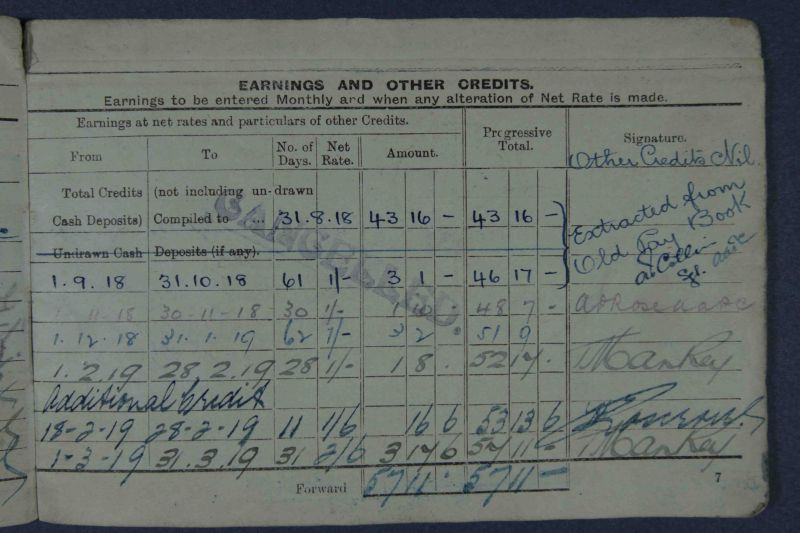 EARNINGS AND OTHER CREDITS.
Earnings to be entered Monthly and when any alteration of Net Rate is made.
Earnings at net rates and particulars of other Credits.
Progressive Total.
Signature.
From To No. of Days. Net Rate. Amount.
Other Credits Nil.
Total Credits (not including un-drawn
Cash Deposits) Compiled to ... 31.8.18 43 16 - 43 16 -
Extracted from
Old Pay Book
Undrawn Cash Deposits (if any).
CANCELLED.
1.9.18 31.10.18 61 1/- 3 1 - 46 17 -
a. Collin Sgt. aapc
1.11.18 30-11-18. 30 1/- 1 10 - 48 7 -
1.12.18 31.1.19 62 1/- 3 2 51 9
1.2.19 28.2.19 28 1/- 1 8 . 52 17 .
Additional Credit
18-2-19 28-2-19 11 1/6 16 6 53 13 6
1-3-19 31.3.19 31 2/6 3 17 6 57 11 -
Forward 57 11 . 57 11 -
7